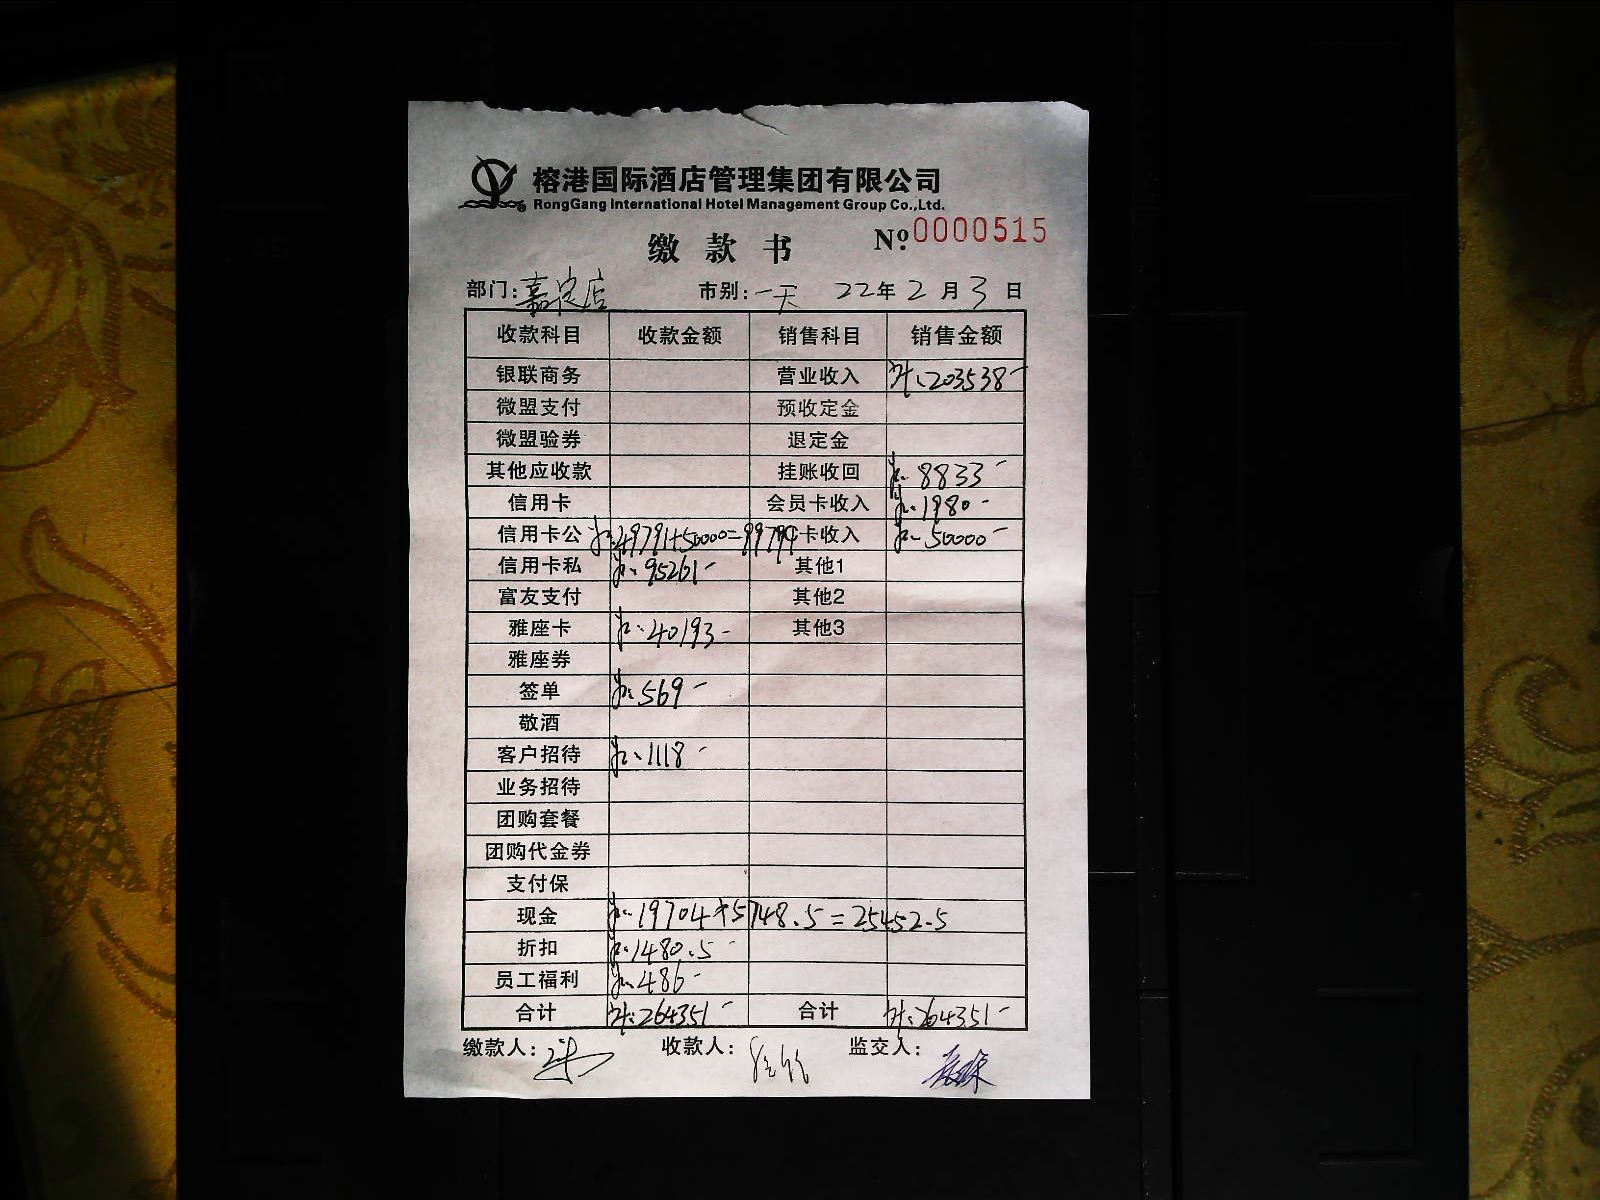 榕港国际酒店管理集团有限公司
RongGang International Hotel Management Group Co.,Ltd.
缴款书 №0000515
部门:嘉定店 市别:一天 22年2月3日
收款科目 收款金额 销售科目 销售金额
银联商务 营业收入 ¥:203538-
微盟支付 预收定金
微盟验券 退定金
其他应收款 挂账收回 ¥:8833-
信用卡 会员卡收入 ¥:1980-
信用卡公 ¥:49791+50000=99791 卡收入 ¥:50000-
信用卡私 ¥:95261- 其他1
富友支付 其他2
雅座卡 ¥:40193- 其他3
雅座券
签单 ¥:569-
敬酒
客户招待 ¥:1118-
业务招待
团购套餐
团购代金券
支付保
现金 ¥:19704+5748.5=25452.5
折扣 ¥:1480.5-
员工福利 ¥:486-
合计 ¥:264351- 合计 ¥:264351-
缴款人: 收款人: 监交人: